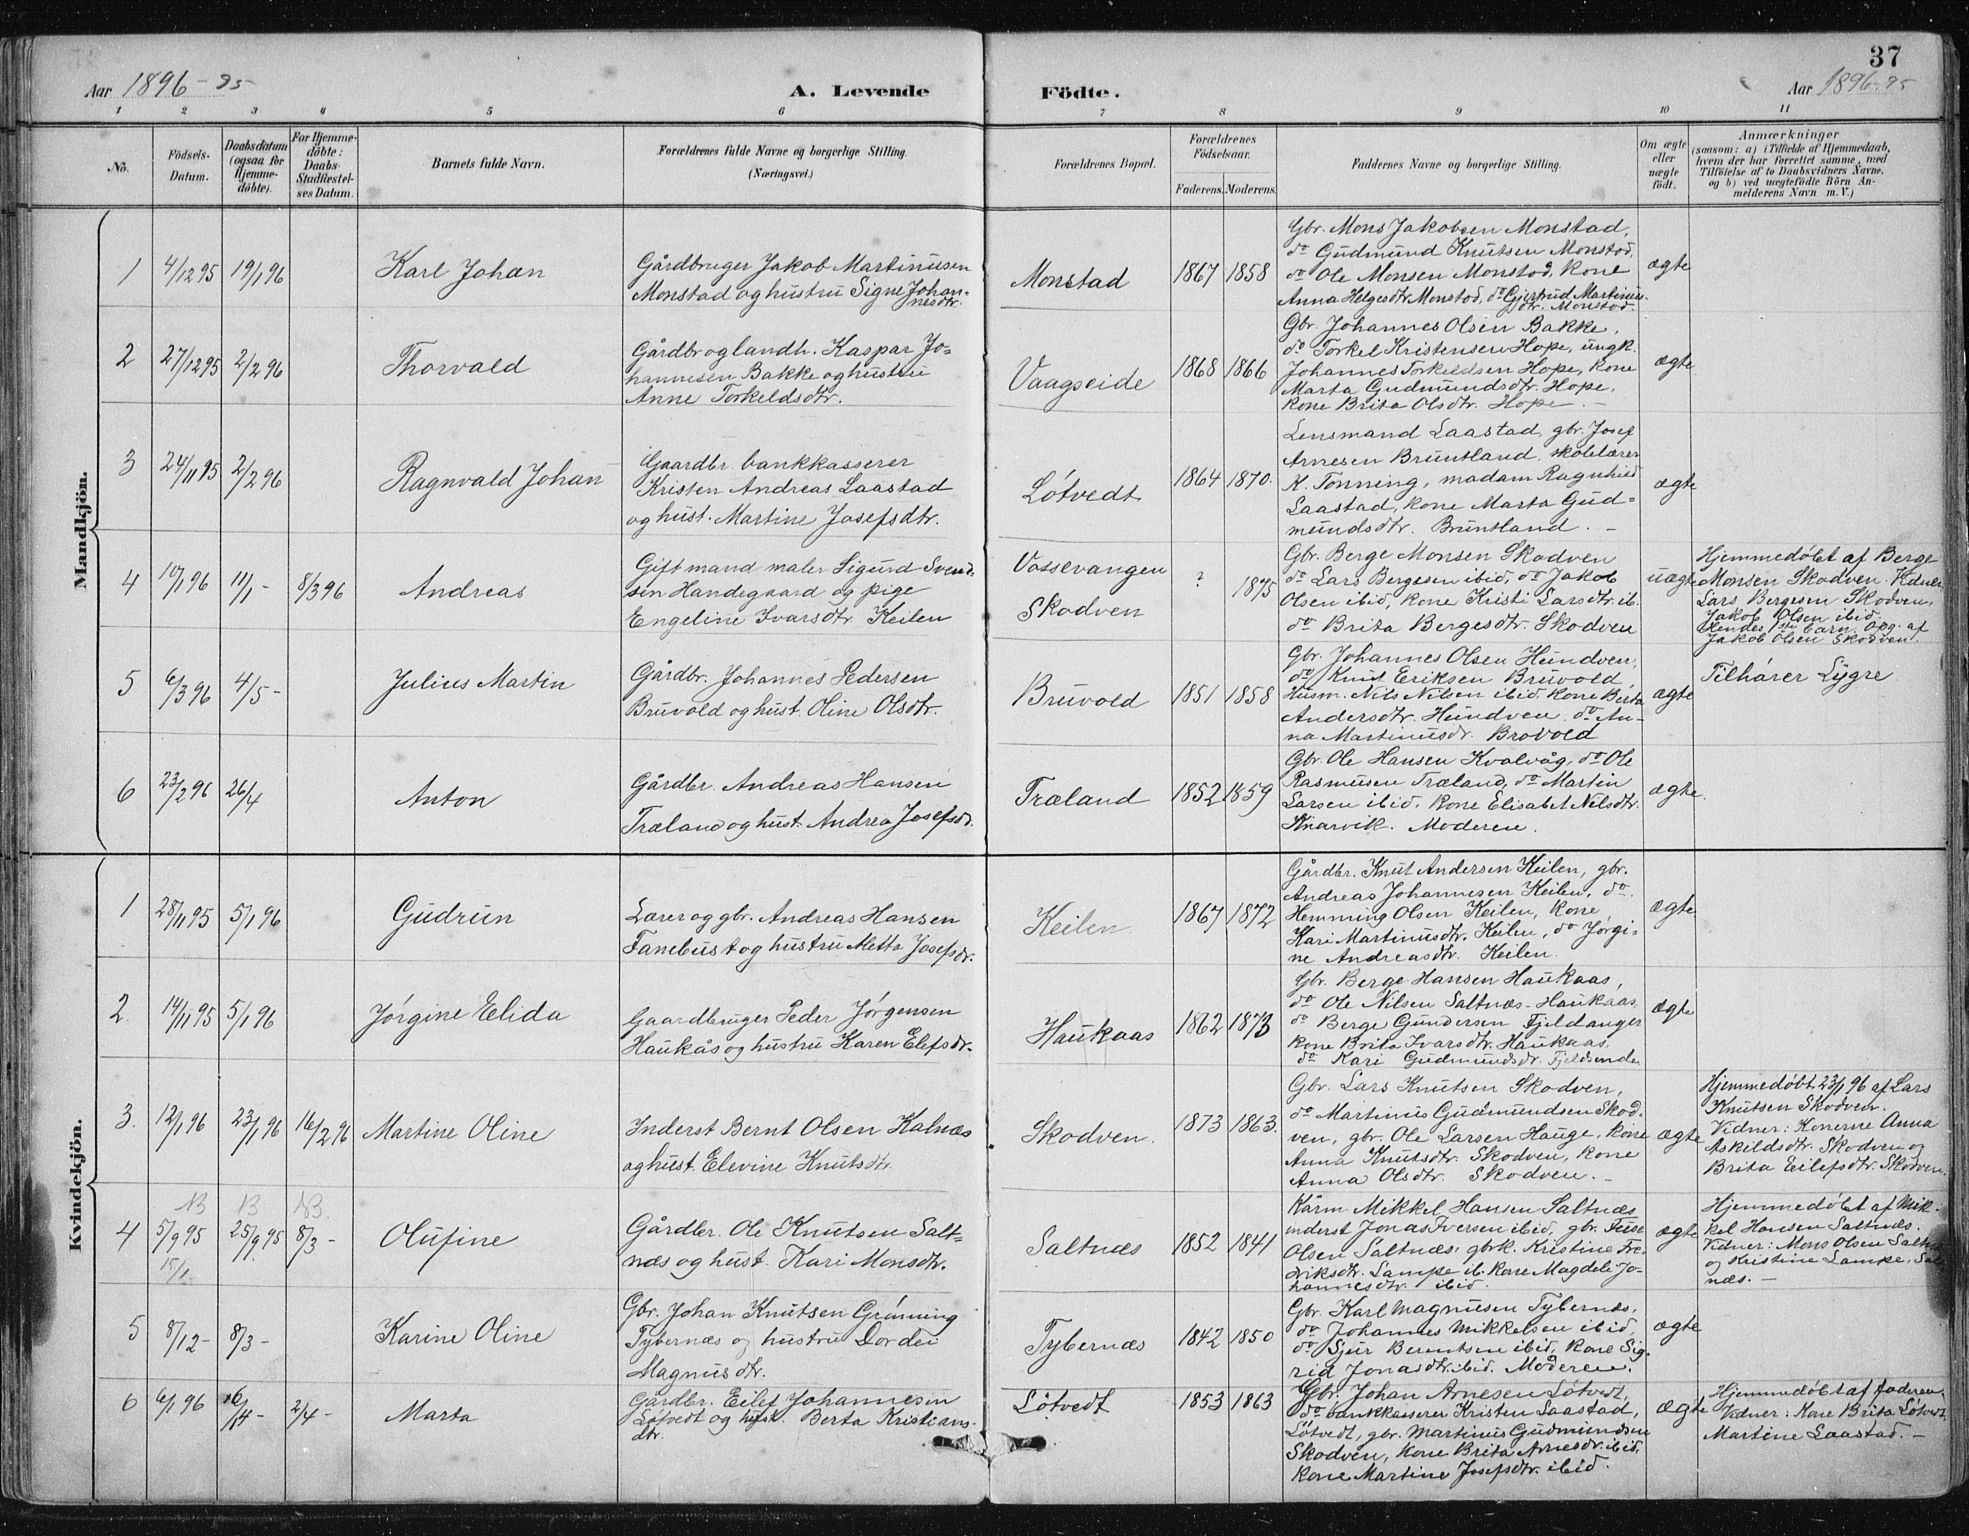 37
Aar 1896-95
A. Levende Födte.
Aar 1896-95
1 2 3 4 5 6 7 8 9 10 11
No.
Födsels-
Datum.
Daabsdatum
(ogsaa for
Hjemme-
döbte).
For Hjemme-
döbte:
Daabs-
Stadfæstel-
ses Datum.
Barnets fulde Navn.
Forældrenes fulde Navne og borgerlige Stilling.
(Næringsvei.)
Forældrenes Bopæl.
Forældrenes
Födselsaar.
Faderens. Moderens.
Faddernes Navne og borgerlige Stilling.
Om ægte
eller
uægte
födt.
Anmærkninger
(saasom: a) i Tilfælde af Hjemmedaab,
hvem der har forrettet samme, med
Tilföielse af to Daabsvidners Navne,
og b) ved uægtefödte Börn An-
melderens Navn m. V.)
Mandkjön.
1 4/12 95 19/1 96
Karl Johan
Gårdbruger Jakob Martinusen
Monstad og hustru Signe Johan-
nesdtr.
Monstad
1867 1858
Gbr. Mons Jakobsen Monstad,
do Gudmund Knutsen Monstad,
do Ole Monsen Monstad, kone
Anna Helgesdtr. Monstad, do Gjertrud Martinus-
dtr. Monstad.
ægte
2 27/12 95 2/2 96
Thorvald
Gårdbr og landh. Kaspar Jo-
hannesen Bakke og hustru
Anne Torkeldsdtr.
Vaagseide
1868 1866
Gbr. Johannes Olsen Bakke,
do Torkel Kristensen Hope, ungk.
Johannes Torkeldsen Hope, kone
Marta Gudmundsdtr. Hope,
kone Brita Olsdtr. Hope. -
ægte
3 24/11 95 2/2 96
Ragnvald Johan
Gaardbr. bankkasserer
Kristen Andreas Laastad
og hust. Martine Josefsdtr.
Løtvedt
1864 1870.
Lensmand Laastad, gbr. Josef
Arnesen Bruntland, skolelærer
K. Tonning, madam Ragnhild
Laastad, kone Marta Gud-
mundsdtr. Bruntland. -
ægte
4 10/1 96 11/1 - 8/3 96
Andreas
Gift mand maler Sigurd Svend-
sen Handegaard og pige
Engeline Ivarsdtr. Keilen
Vossevangen
Skodven
? 1875
Gbr. Berge Monsen Skodven
do Lars Bergesen ibid, do Jakob
Olsen ibid, kone Kristi Larsdtr. ib.
do Brita Bergesdtr. Skodven
uægte
Hjemmedøbt af Berge
Monsen Skodven. Vidner
Lars Bergesen Skodven,
Jakob Olsen ibid.
Hendes 1ste barn. Opg. af
Jakob Olsen Skodven.
5 6/3 96 4/5 -
Julius Martin
Gårdbr. Johannes Pedersen
Bruvold og hust. Oline Olsdtr.
Bruvold
1851 1858
Gbr. Johannes Olsen Hundven,
do Knut Eriksen Bruvold,
Husm. Nils Nilsen ibid, kone Berta
Andersdtr. Hundven, do An-
na Martinusdr. Brovold
ægte
Tilhører Lygre
6 23/2 96 26/4
Anton
Gårdbr. Andreas Hansen
Træland og hust. Andrea Josefsdr.
Træland
1852 1859
Gbr. Ole Hansen Kvalvåg, do Ole
Rasmusen Træland, do Martin
Larsen ibid, kone Elisabet Nilsdtr.
Knarvik. Moderen.
ægte.
Kvindekjön.
1 28/11 95 5/1 96
Gudrun
Lærer og gbr. Andreas Hansen
Fanebust og hustru Metta Josefsdr.
Keilen
1867 1872
Gårdbr. Knut Andersen Keilen, gbr.
Andreas Johannesen Keilen, do
Hemming Olsen Keilen, kone
Kari Martinusdtr. Keilen, do Jørgi-
ne Andreasdtr. Keilen.
ægte
2. 14/11 95 5/1 96
Jørgine Elida
Gaardbruger Peder Jørgensen
Haukås og hustru Karen Elefsdr.
Haukaas
1862 1873
Gbr. Berge Hansen Haukaas,
do Ole Nilsen Saltnæs-Haukaas,
do Berge Gundersen Fjeldanger
kone Brita Ivarsdtr. Haukaas,
do Kari Gudmundsdr. Fjeldsende
ægte
3. 12/1 96 23/1 96 16/2 96
Martine Oline
Inderst Bernt Olsen Kalnæs
og hust. Elevine Knutsdtr.
Skodven.
1873 1863.
Gbr. Lars Knutsen Skodven,
do Martinus Gudmundsen Skod-
ven, gbr. Ole Larsen Hauge, kone
Anna Knutsdtr. Skodven, kone
Anna Olsdtr. Skodven. -
ægte
Hjemmedøbt 23/1 96 af Lars
Knutsen Skodven.
Vidner: Konerne Anna
Askildsdtr. Skodven og
Brita Eilefsdtr. Skodven
NB NB NB.
4 5/9 95 25/9 95 8/3 -
15/1
Olufine
Gårdbr. Ole Knutsen Salt-
næs og hust. Kari Monsdtr.
Saltnæs
1852 1841
Kårm. Mikkel Hansen Saltnæs
inderst Jonas Iversen ibid, gbr.
Olsen Saltnæs, gbrk. Kristine Fre-
driksdtr. Lampe ib. kone Magdele Jo-
hannesdtr. ibid.
ægte
Hjemmedøbt af Mik-
kel Hansen Saltnæs.
Vidner: Mons Olsen Saltnæs
og Kristine Lampe, Salt-
næs. -
5 8/12 - 8/3 -
Karine Oline
Gbr. Johan Knutsen Grønning
Tybernæs og hustru Dordei
Magnusdtr.
Tybernæs
1842 1850
Gbr. Karl Magnusen Tybernæs,
do Johannes Mikkelsen ibid,
do Sjur Berentsen ibid, kone Sig-
rid Jonasdtr. ibid. Moderen.
ægte
6 6/1 96 2/4 -
Marta
Gårdbr. Eilef Johannesen
Løtvedt og hust. Berta Kristians-
dtr.
Løtvedt
1853 1863
Gbr. Johan Arnesen Løtvedt,
do bankkasserer Kristen Laastad,
Løtvedt, gbr. Martinus Gudmundsen
Skodven, kone Brita Arnesdr. ibid,
kone Martine Josefsdtr. ibid.
ægte
Hjemmedøbt af faderen.
Vidner: Kone Brita Løtvedt,
Martine Laastad. -